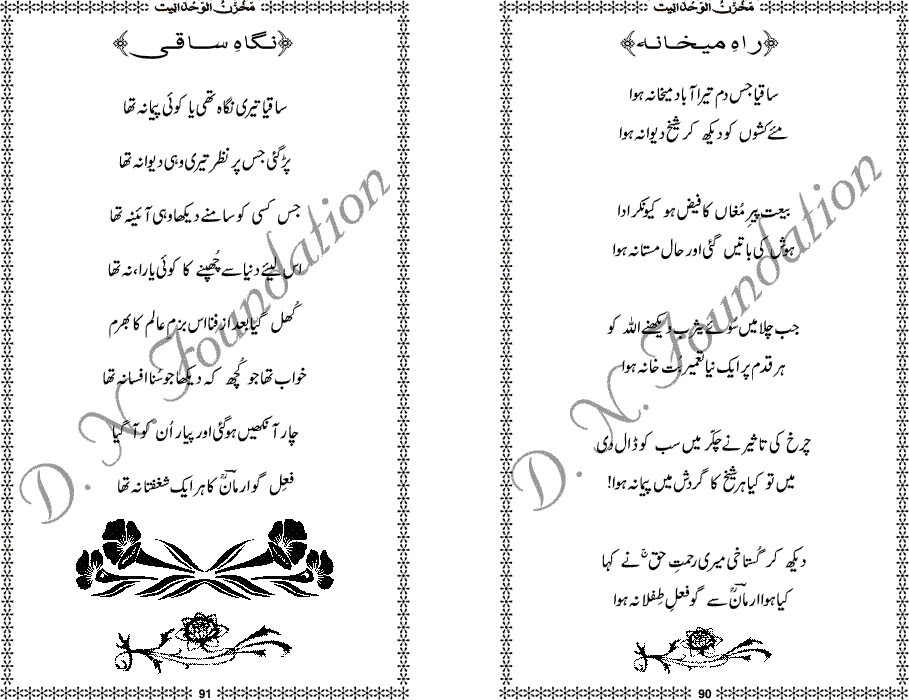 مخزن الوحدانیت
﴿راہِ میخانہ﴾
ساقیا جس دم تیرا آباد میخانہ ہوا
مئے کشوں کو دیکھ کر شیخ دیوانہ ہوا
بیعت پیرِ مُغاں کا فیض ہو کیونکر ادا
ہوش کی باتیں گئی اور حال مستانہ ہوا
جب چلا میں سُوئے یثرب دیکھنے اللہ کو
ہر قدم پر ایک نیا تعمیر بُت خانہ ہوا
چرخ کی تاثیر نے چکّر میں سب کو ڈال دی
میں تو کیا ہر شیخ کا گردش میں پیمانہ ہوا!
دیکھ کر گستاخی میری رحمتِ حق نے کہا
کیا ہوا ارمانؔ سے گو فعلِ طِفلانہ ہوا
90
مخزن الوحدانیت
﴿نگاہِ ساقی﴾
ساقیا تیری نگاہ تھی یا کوئی پیمانہ تھا
پڑ گئی جس پر نظر تیری وہی دیوانہ تھا
جس کسی کو سامنے دیکھا وہی آئینہ تھا
اس لیئے دنیا سے چُھپنے کا کوئی یارا، نہ تھا
کُھل گیا بعد از فنا اس بزمِ عالم کا بھرم
خواب تھا جو کُچھ کہ دیکھا جو سُنا افسانہ تھا
چار آنکھیں ہو گئی اور پیار اُن کو آ گیا
فعلِ گو ارمانؔ کا ہر ایک شغفتانہ تھا
91
D. N. Foundation
D. N. Foundation